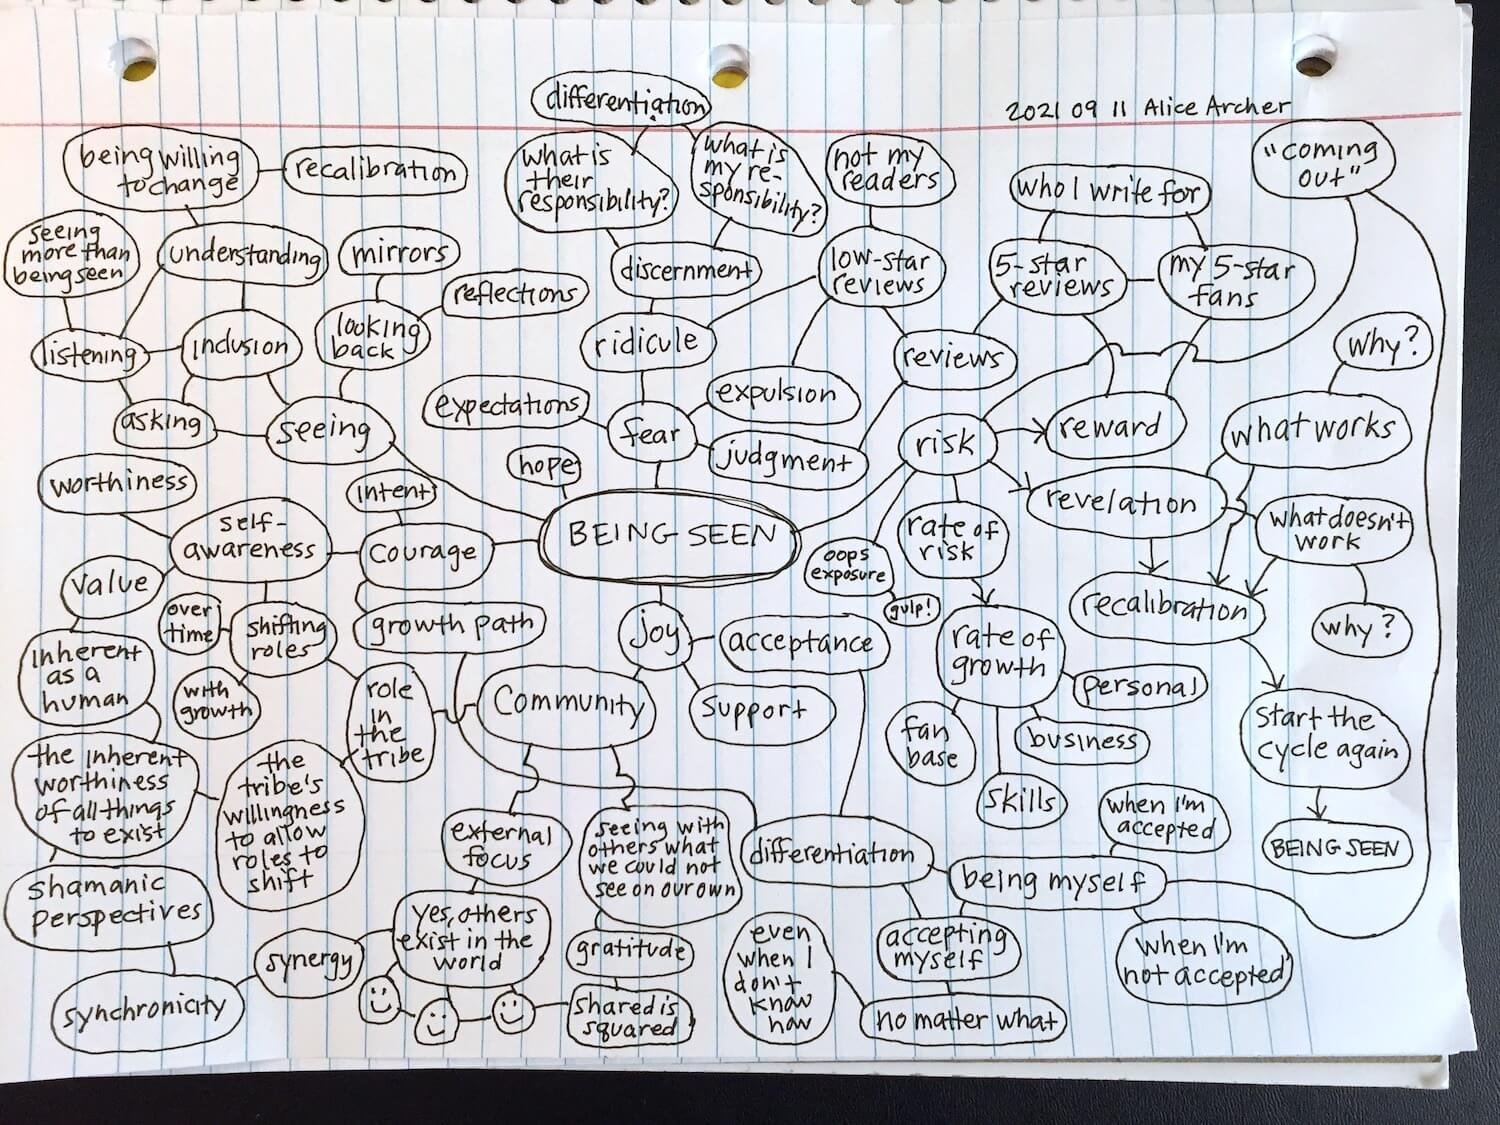 2021 09 11 Alice Archer
differentiation
being willing
to change
recalibration
what is
their
responsibility?
what is
my re-
sponsibility?
not my
readers
who I write for
"coming
out"
seeing
more than
being seen
understanding
mirrors
reflections
discernment
low-star
reviews
5-star
reviews
my 5-star
fans
listening
inclusion
looking
back
ridicule
reviews
why?
asking
seeing
expectations
fear
expulsion
judgment
risk
reward
what works
worthiness
intent
hope
revelation
self-
awareness
courage
BEING SEEN
rate of
risk
what doesn't
work
oops
exposure
gulp!
value
over
time
shifting
roles
growth path
joy
acceptance
rate of
growth
recalibration
why?
inherent
as a
human
with
growth
role
in
the
tribe
Community
support
personal
fan
base
business
skills
start the
cycle again
the inherent
worthiness
of all things
to exist
the
tribe's
willingness
to allow
roles to
shift
external
focus
seeing with
others what
we could not
see on our own
differentiation
being myself
when I'm
accepted
BEING SEEN
shamanic
perspectives
yes, others
exist in the
world
gratitude
even
when I
don't
know
how
accepting
myself
when I'm
not accepted
synergy
synchronicity
shared is
squared
no matter what